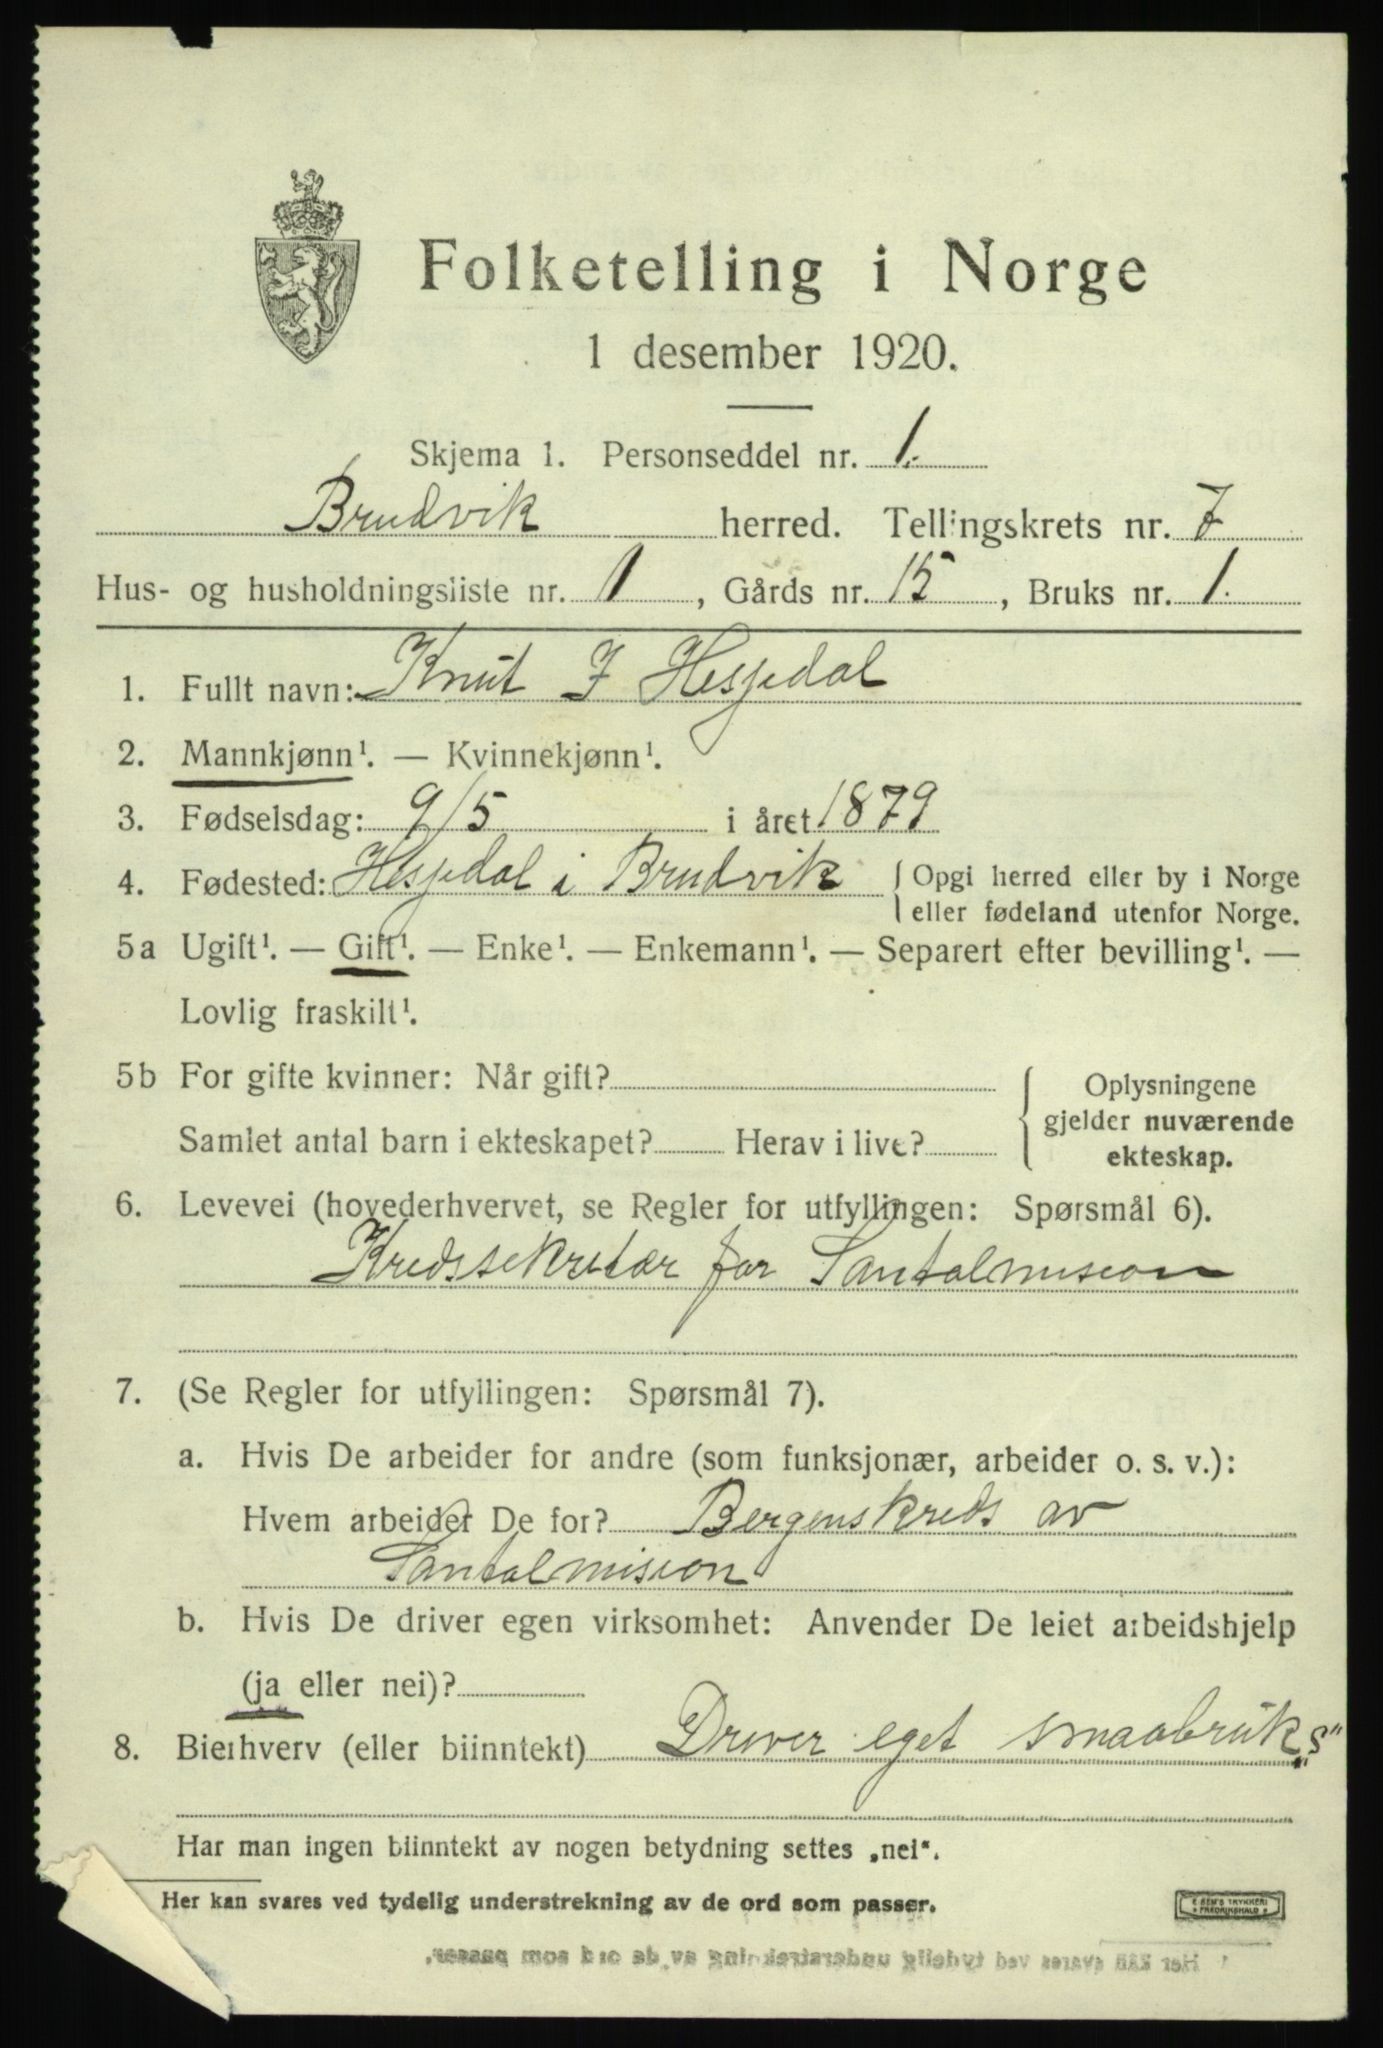 Folketelling i Norge
1 desember 1920.
Skjema 1. Personseddel nr. 1.
Brudvik herred. Tellingskrets nr. 7
Hus- og husholdningsliste nr. 1, Gårds nr. 15, Bruks nr. 1.
1. Fullt navn: Knut J Hesjedal
2. Mannkjønn¹. — Kvinnekjønn¹.
3. Fødselsdag: 9/5 i året 1879
4. Fødested: Hesjedal i Brudvik { Opgi herred eller by i Norge
eller fødeland utenfor Norge.
5a Ugift¹. — Gift¹. — Enke¹. — Enkemann¹. — Separert efter bevilling¹. —
Lovlig fraskilt¹.
5b For gifte kvinner: Når gift?
Samlet antal barn i ekteskapet? Herav i live?
{ Oplysningene
gjelder nuværende
ekteskap.
6. Levevei (hovederhvervet, se Regler for utfyllingen: Spørsmål 6).
Kredssekretær for Santalmision
7. (Se Regler for utfyllingen: Spørsmål 7).
a. Hvis De arbeider for andre (som funksjonær, arbeider o. s. v.):
Hvem arbeider De for? Bergenskreds av
Santalmision
b. Hvis De driver egen virksomhet: Anvender De leiet arbeidshjelp
(ja eller nei)?
8. Bierhverv (eller biinntekt) Driver eget smaabruk „s"
Har man ingen biinntekt av nogen betydning settes „nei".
Her kan svares ved tydelig understrekning av de ord som passer.
E. SEM'S TRYKKERI
FREDRIKSHALD
¹ Her kan svares ved tydelig understrekning av de ord som passer.